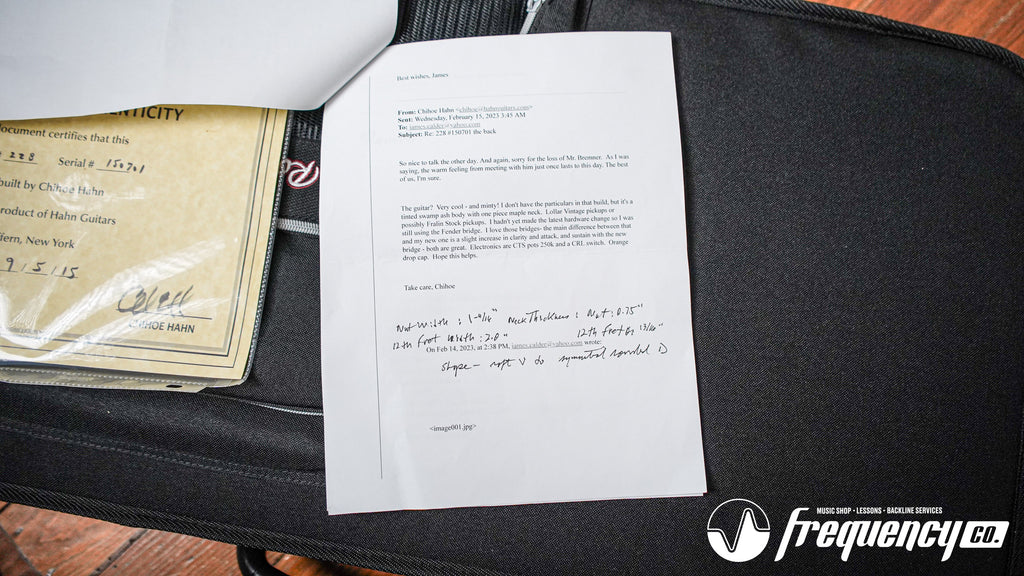 ENTICITY
ocument certifies that this
228 Serial # 150701
built by Chihoe Hahn
roduct of Hahn Guitars
ffern, New York
9/5/15
CHIHOE HAHN
Best wishes, James
From: Chihoe Hahn <chihoe@hahnguitars.com>
Sent: Wednesday, February 15, 2023 5:45 AM
To: james.calder@yahoo.com
Subject: Re: 228 #150701 the back
So nice to talk the other day. And again, sorry for the loss of Mr. Brenner. As I was
saying, the warm feeling from meeting with him just once lasts to this day. The best
of us, I'm sure.
The guitar? Very cool - and minty! I don't have the particulars in that build, but it's a
tinted swamp ash body with one piece maple neck. Lollar Vintage pickups or
possibly Fralin Stock pickups. I hadn't yet made the latest hardware change so I was
still using the Fender bridge. I love those bridges- the main difference between that
and my new one is a slight increase in clarity and attack, and sustain with the new
bridge - both are great. Electronics are CTS pots 250k and a CRL switch. Orange
drop cap. Hope this helps.
Take care, Chihoe
Nut width: Neck Thickness: Nut: 0.75"
12th fret width: 2.0" 12th fret 13/16"
On Feb 14, 2023, at 2:38 PM, james.calder@yahoo.com wrote:
shape - soft V to symmetrical rounded D
<image001.jpg>
MUSIC SHOP • LESSONS • BACKLINE SERVICES
frequency co.